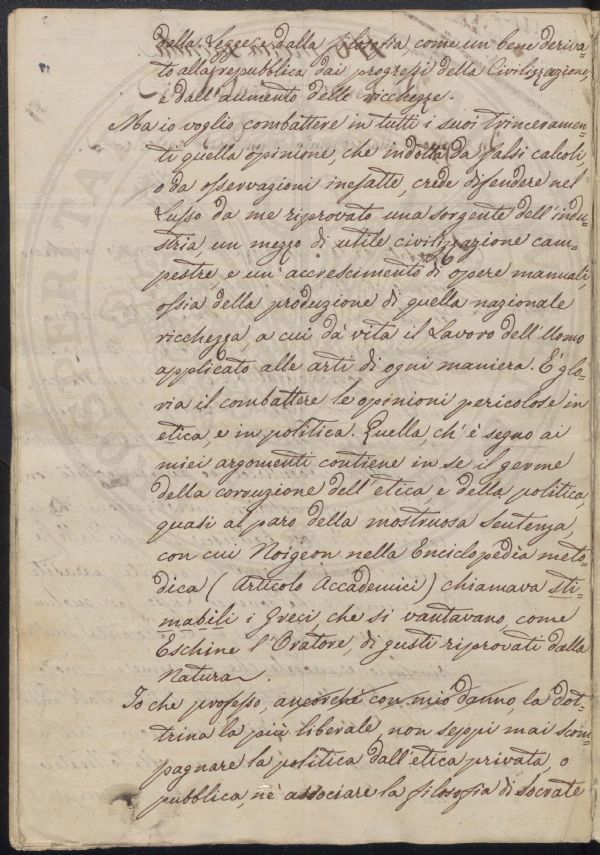 della Legge e dalla filosofia, come un bene deriva-
to alla repubblica dai progressi della Civilizzazione,
e dall'aumento delle ricchezze.
Ma io voglio combattere in tutti i suoi trinceramen-
ti quella opinione, che indotta da falsi calcoli,
o da osservazioni inesatte, crede difendere nel
Lusso da me riprovato una sorgente dell'indu-
stria, un mezzo di utile civilizzazione cam-
pestre, e un'accrescimento di opere manuali,
ossia della produzione di quella nazionale
ricchezza, a cui dà vita il Lavoro dell'Uomo
applicato alle arti di ogni maniera. È glo-
ria il combattere le opinioni pericolose in
etica, e in politica. Quella, ch'è segno ai
miei argomenti contiene in se il germe
della corruzione dell'etica e della politica,
quasi al paro della mostruosa sentenza
con cui Noigeon nella Enciclopedia meto-
dica (Articolo Accademici) chiamava sti-
mabili i Greci, che si vantavano, come
Eschine l'Oratore, di gusti riprovati dalla
Natura.
Io che professo, ancorchè con mio danno, la dot-
trina la più liberale, non seppi mai scom-
pagnare la politica dall'etica privata, o
pubblica, nè associare la filosofia di Socrate